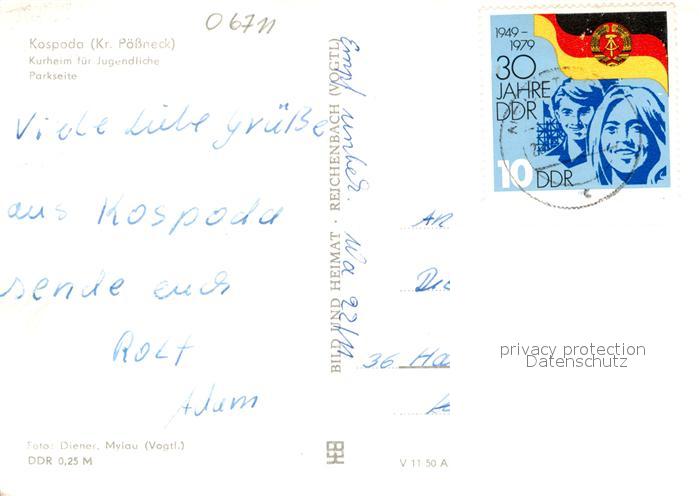 06711
Kospoda (Kr. Pößneck)
Kurheim für Jugendliche
Parkseite
Viele liebe Grüße
aus Kospoda
sende euch
Rolf
Adam
Foto: Diener, Mylau (Vogtl.)
DDR 0,25 M
BILD UND HEIMAT · REICHENBACH (VOGTL)
Empf unbek.
V 11 50 A
1949–
1979
30
JAHRE
DDR
10 DDR
An
36 Ha
privacy protection
Datenschutz